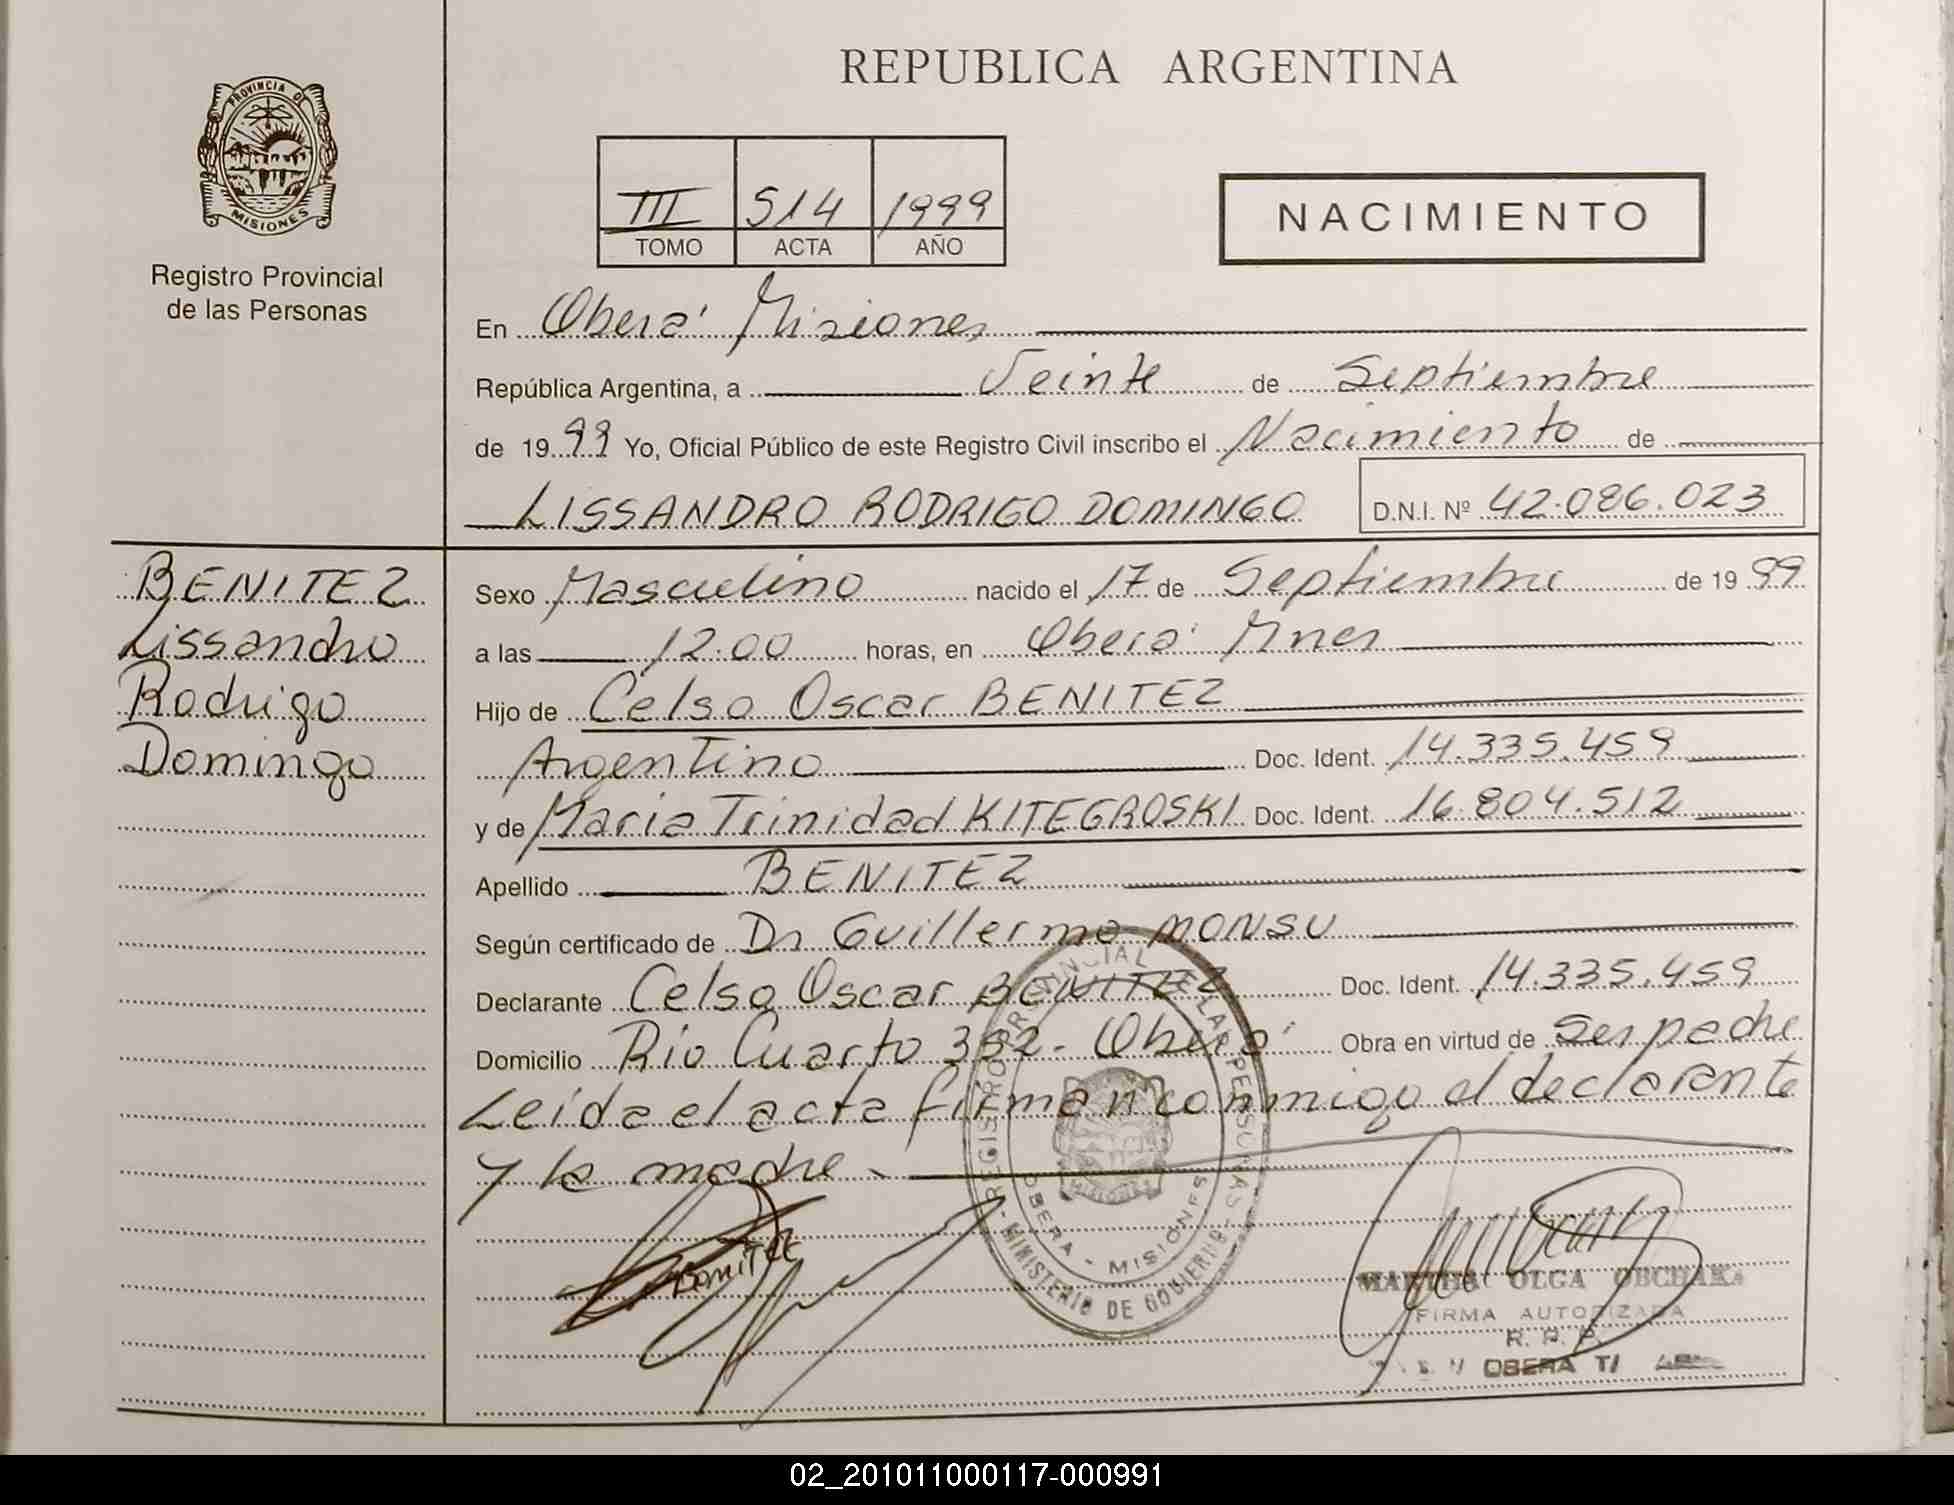 REPUBLICA ARGENTINA
PROVINCIA DE
MISIONES
Registro Provincial
de las Personas
III 514 1999
TOMO ACTA AÑO
NACIMIENTO
En Oberá Misiones
República Argentina, a Veinte de Septiembre
de 1999 Yo, Oficial Público de este Registro Civil inscribo el Nacimiento de
LISSANDRO RODRIGO DOMINGO D.N.I. Nº 42.086.023
BENITEZ
Lissandro
Rodrigo
Domingo
Sexo Masculino nacido el 17 de Septiembre de 1999
a las 12.00 horas, en Oberá Mnes
Hijo de Celso Oscar BENITEZ
Argentino Doc. Ident. 14.335.459
y de Maria Trinidad KITEGROSKI Doc. Ident. 16.804.512
Apellido BENITEZ
Según certificado de Dr Guillermo MONSU
Declarante Celso Oscar BENITEZ Doc. Ident. 14.335.459
Domicilio Rio Cuarto 382 - Oberá Obra en virtud de Ser padre
Leida el acta firman conmigo el declarante
y la madre
REGISTRO PROVINCIAL DE LAS PERSONAS
MISIONES
OBERA - MISIONES
- MINISTERIO DE GOBIERNO -
BENITEZ
MARTHA OLGA OBCHAKA
FIRMA AUTORIZADA
R. P. P.
OBERA
02_201011000117-000991